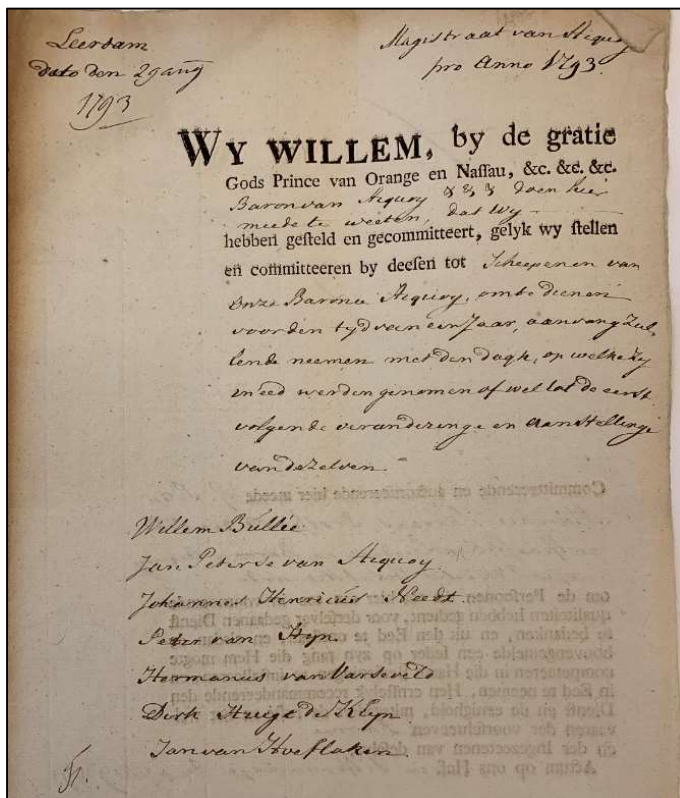 Leerdam
dato den 29 aug
1793
Magistraat van Acquoy
pro Anno 1793.
WY WILLEM, by de gratie
Gods Prince van Orange en Nassau, &c. &c. &c.
Baron van Acquoy & & & doen hier
meede te weeten, dat Wy
hebben gesteld en gecommitteert, gelyk wy stellen
en committeeren by deesen tot Scheepenen van
Onze Baronie Acquoy, om te dienen
voor den tyd van een Jaar, aanvang zul-
lende neemen met den dagh, op welke zy
in eed werden genomen of wel tot de eerst
volgende veranderinge en aanstellinge
van dezelven
Willem Bullée
Jan Peterse van Acquoy
Johannes Henricus Needt
Peter van Hyn
Hermanus van Varseveld
Dirk Huige de Kleyn
Jan van Hoeflaken